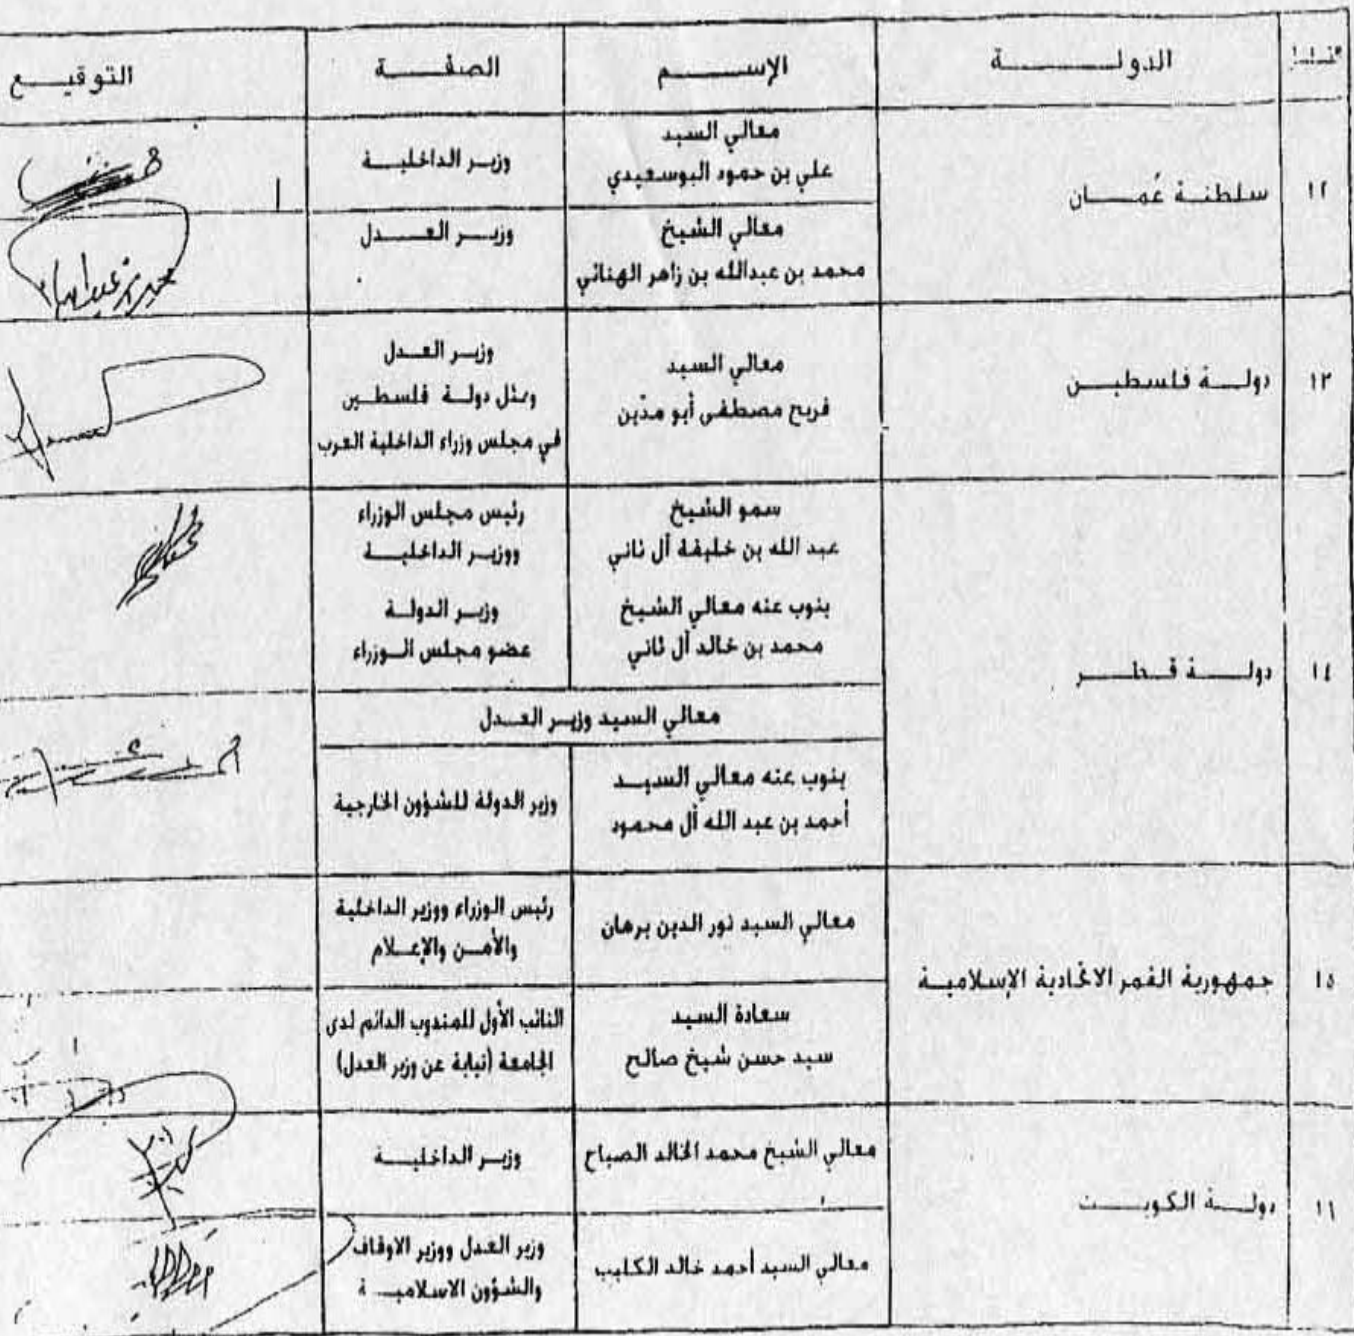 الدولــــة
الإســــم
الصفــــة
التوقيــع
١٢
سلطنـة عُمـــان
معالي السيد
علي بن حمود البوسعيدي
وزيـر الداخليــة
معالي الشيخ
محمد بن عبدالله بن زاهر الهنائي
وزيــر العــــدل
١٣
دولـــة فلسطيـــن
معالي السيد
فريح مصطفى أبو مدّين
وزيــر العــدل
وممثل دولـة فلسطـين
في مجلس وزراء الداخلية العرب
١٤
دولــــة قـطــــر
سمو الشيخ
عبد الله بن خليفة آل ثاني
رئيس مجلس الوزراء
ووزيـر الداخليـــة
ينوب عنه معالي الشيخ
محمد بن خالد آل ثاني
وزيـر الدولــة
عضو مجلس الــوزراء
معالي السيد وزيــر العــدل
ينوب عنه معالي السيــد
أحمد بن عبد الله آل محمود
وزير الدولة للشؤون الخارجية
١٥
جمهورية القمر الاتحادية الإسلاميـة
معالي السيد نور الدين برهان
رئيس الوزراء ووزير الداخلية
والأمــن والإعــلام
سعادة السيد
سيد حسن شيخ صالح
النائب الأول للمندوب الدائم لدى
الجامعة (نيابة عن وزير العدل)
١٦
دولـــة الكويـــت
معالي الشيخ محمد الخالد الصباح
وزيــر الداخليــــة
معالي السيد أحمد خالد الكليب
وزير العدل ووزير الاوقاف
والشؤون الاسلاميـــة